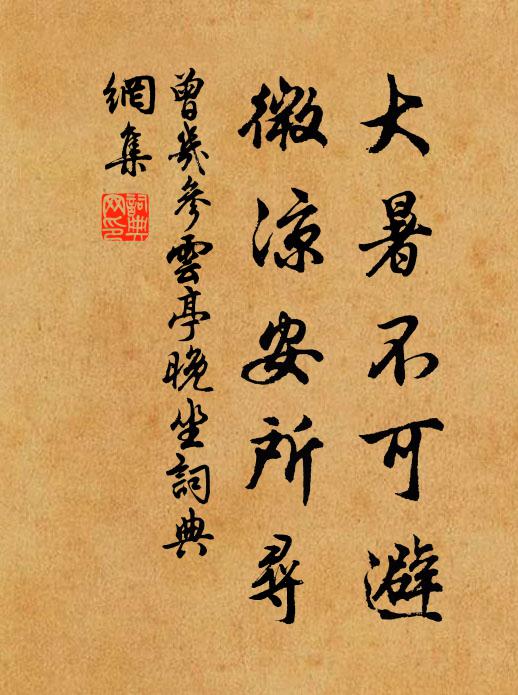 大暑不可避
微涼安所尋
曾幾參雲亭晚坐詞典
網集
詞典網印